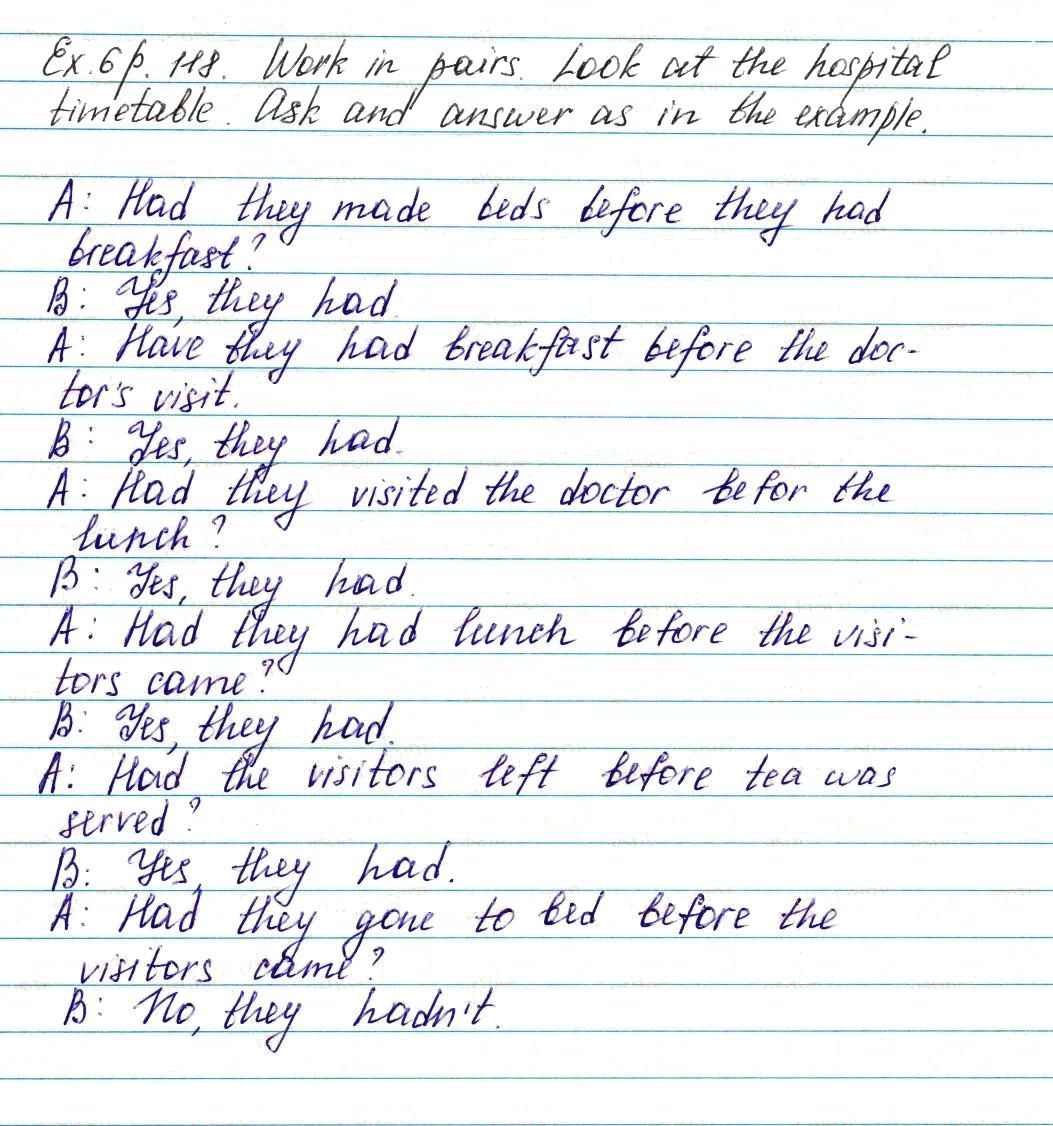 Ex. 6 p. 118. Work in pairs. Look at the hospital
timetable. Ask and answer as in the example.
A: Had they made beds before they had
breakfast?
B: Yes, they had.
A: Have they had breakfast before the doc-
tor's visit.
B: Yes, they had.
A: Had they visited the doctor befor the
lunch?
B: Yes, they had.
A: Had they had lunch before the visi-
tors came?
B: Yes, they had.
A: Had the visitors left before tea was
served?
B: Yes, they had.
A: Had they gone to bed before the
visitors came?
B: No, they hadn't.